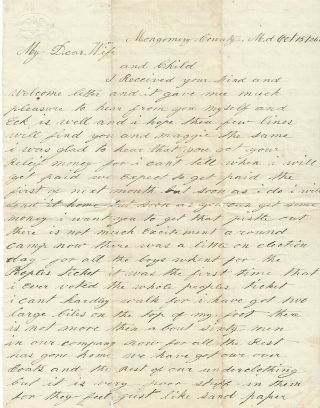 Montgomery County Md Oct 15
My Dear Wife
and Child
I Received your kind and
welcome letter and it gave me much
pleasure to hear from you myself and
is well and i hope these few lines
will find you and maggie the same
i was glad to hear that you got your
Relief money for i can't tell when i will
get paid we expect to get paid the
first of next month but soon as i do i will
send it home soon as you can get some
money i want you to get that out
there is not much Excitement a round
camp now there was a little on election
day for all the boys went for the
Peoples ticket it was the first time that
i ever voted the whole peoples ticket
i cant hardley walk for i have got two
large biles on the top of my foot there
is not more then a bout sixty men
in our company now for all the Rest
has gone home we have got our over
Coats and the Rest of our underclothing
but it is very poor stuff in them
for they feel just like sand paper